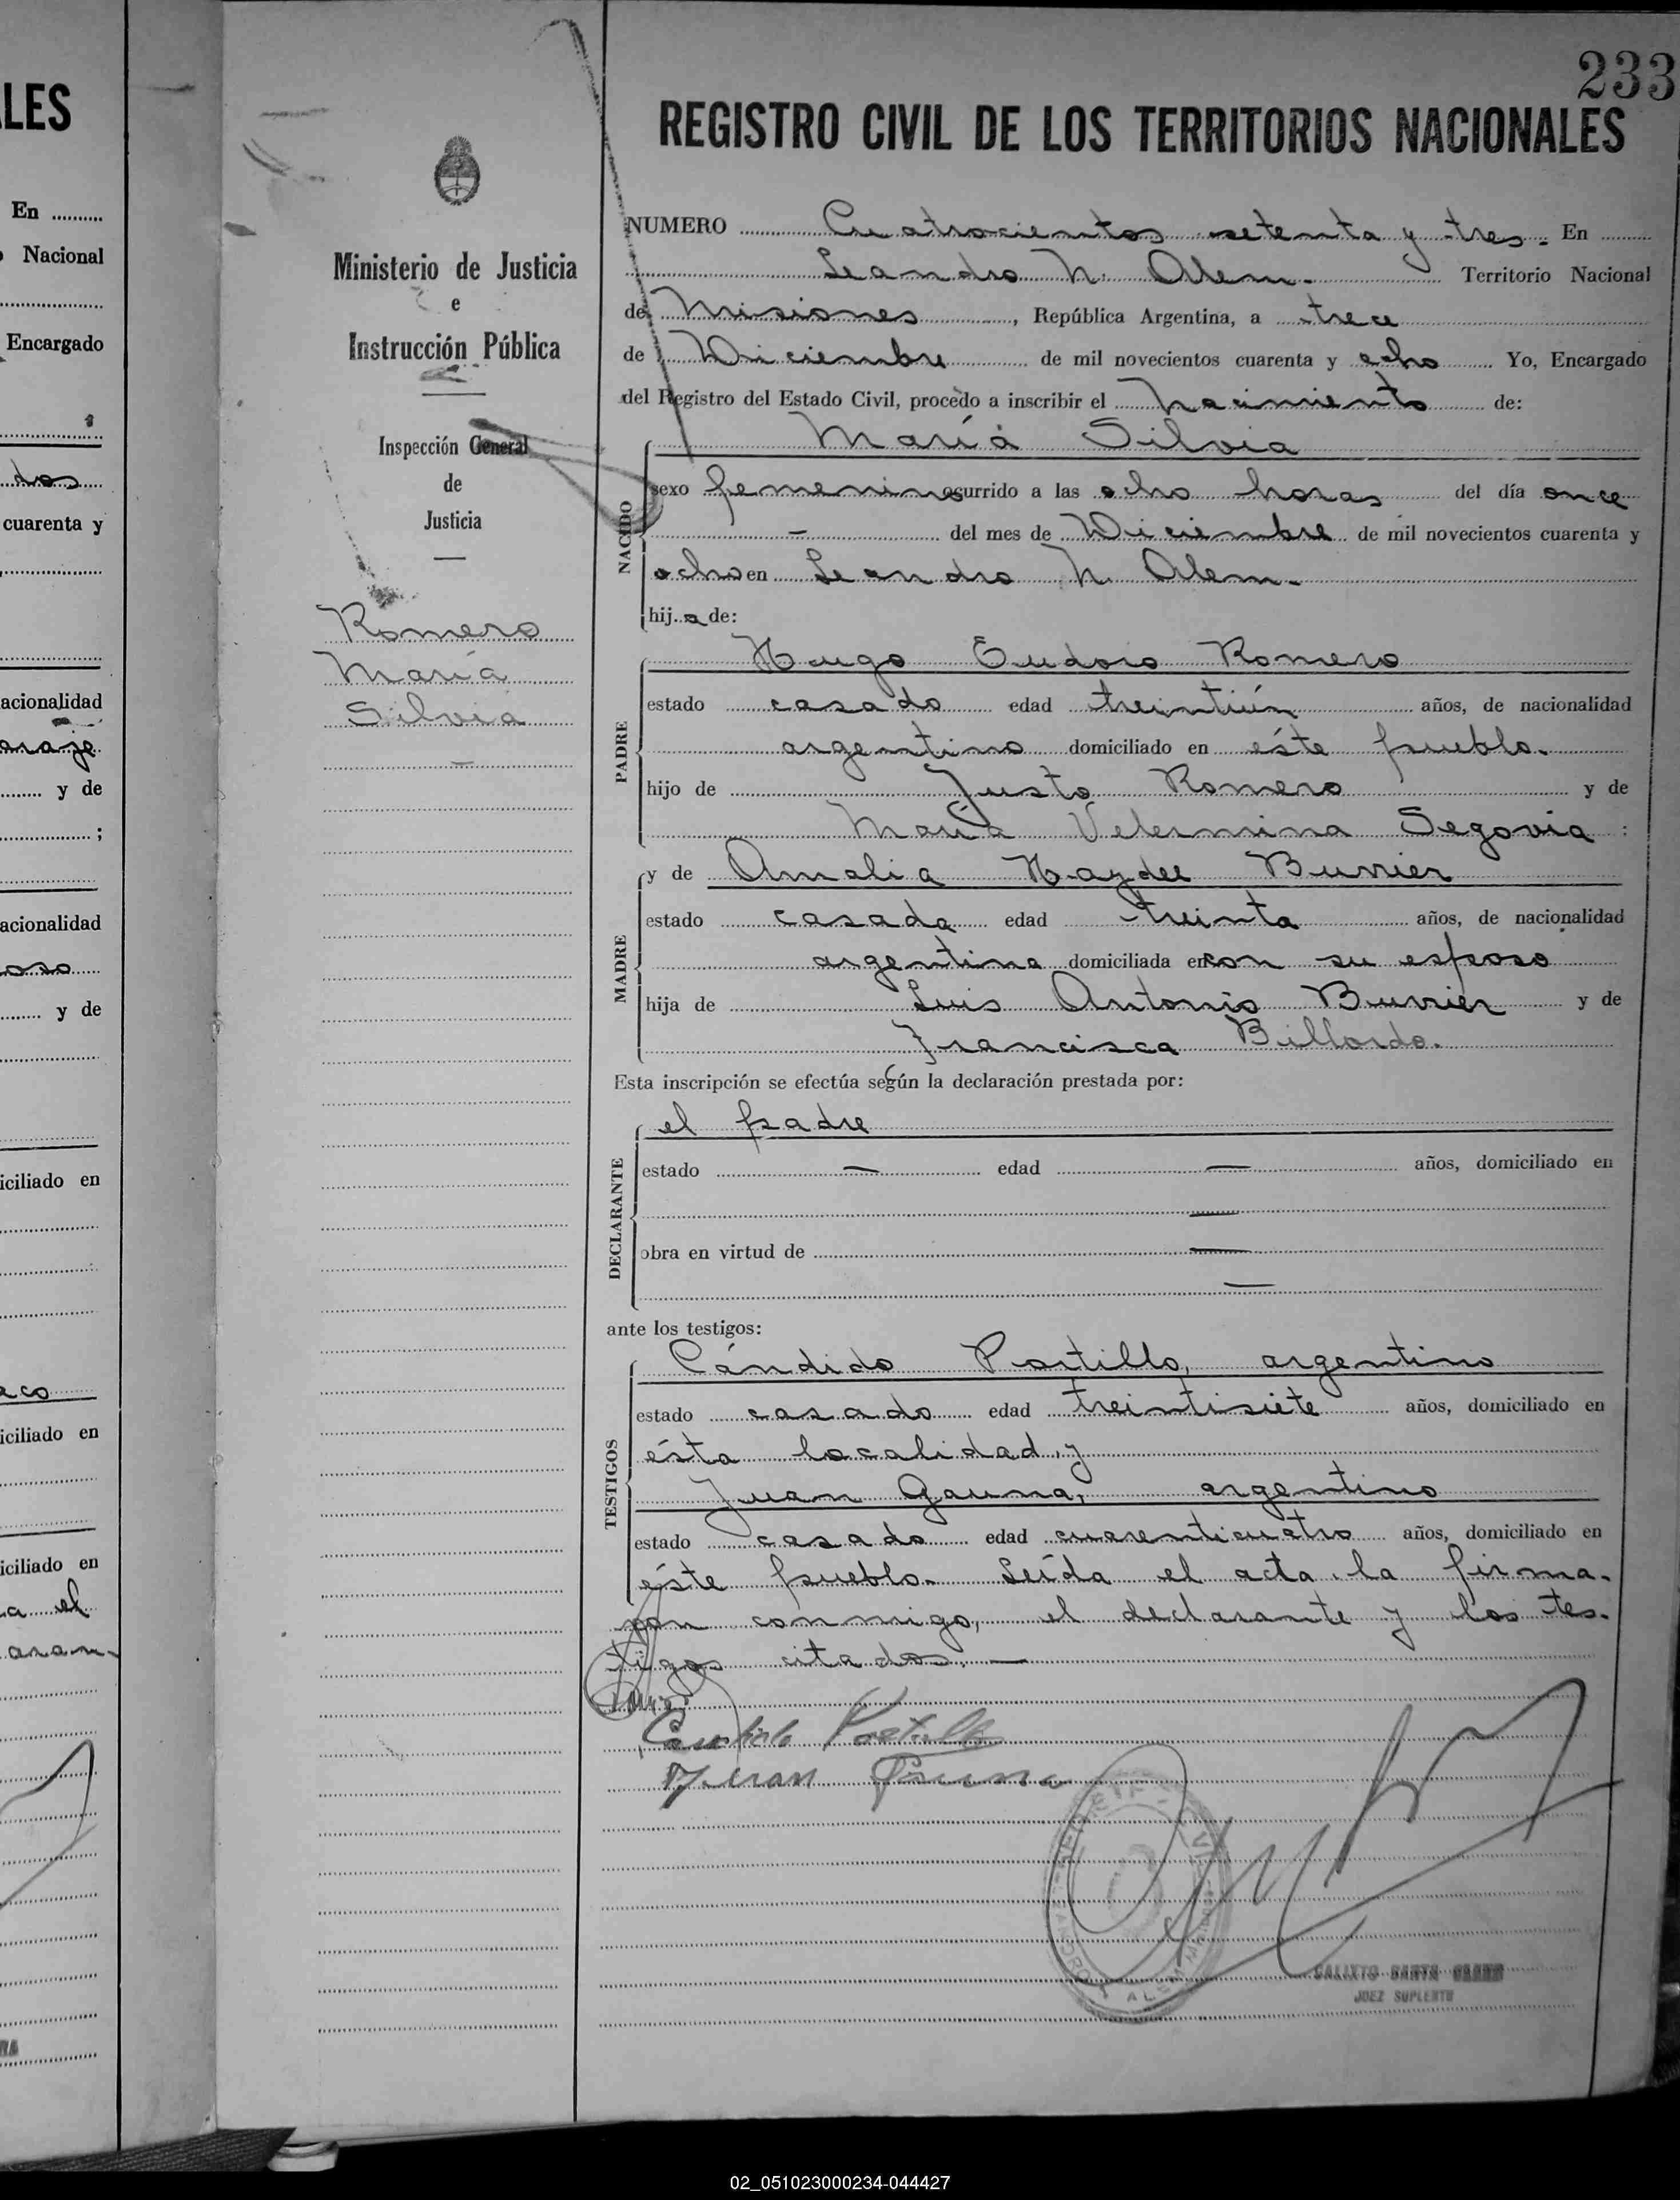 LES
En
Nacional
Encargado
dos
cuarenta y
acionalidad
araje
y de
;
acionalidad
oso
y de
iciliado en
aco
iciliado en
iciliado en
a el
aran-
RA
Ministerio de Justicia
e
Instrucción Pública
Inspección General
de
Justicia
Romero
María
Silvia
—
233
REGISTRO CIVIL DE LOS TERRITORIOS NACIONALES
NUMERO Cuatrocientos setenta y tres.- En
Leandro N. Alem.- Territorio Nacional
de Misiones, República Argentina, a trece
de Diciembre de mil novecientos cuarenta y ocho Yo, Encargado
del Registro del Estado Civil, procedo a inscribir el nacimiento de:
María Silvia
NACIDO
sexo femenino ocurrido a las ocho horas del día once
— del mes de Diciembre de mil novecientos cuarenta y
ocho en Leandro N. Alem.-
hija de:
Hugo Eudoro Romero
PADRE
estado casado edad treintiún años, de nacionalidad
argentino domiciliado en éste pueblo.
hijo de Justo Romero y de
María Velermina Segovia :
y de Amalia Haydee Buvrier
MADRE
estado casada edad treinta años, de nacionalidad
argentina domiciliada en con su esposo
hija de Luis Antonio Buvrier y de
Francisca Billordo.
Esta inscripción se efectúa según la declaración prestada por:
el padre
DECLARANTE
estado — edad — años, domiciliado en
—
obra en virtud de —
—
ante los testigos:
Cándido Portillo, argentino
TESTIGOS
estado casado edad treintisiete años, domiciliado en
ésta localidad y
Juan Gauna, argentino
estado casado edad cuarenticuatro años, domiciliado en
éste pueblo. Leída el acta la firma-
ron conmigo, el declarante y los tes-
tigos citados.—
Candido Portillo
Juan Gauna
LEANDRO N. ALEM
CALIXTO SANTA
JUEZ SUPLENTE
02_051023000234-044427